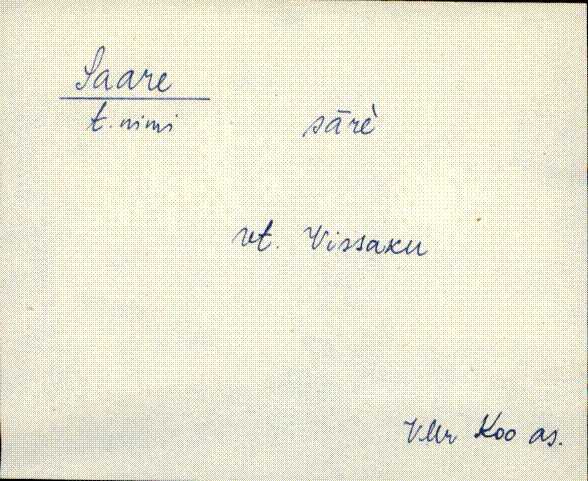 Saare
t. nimi sārè
vt. Vissaku
VMr Koo as.